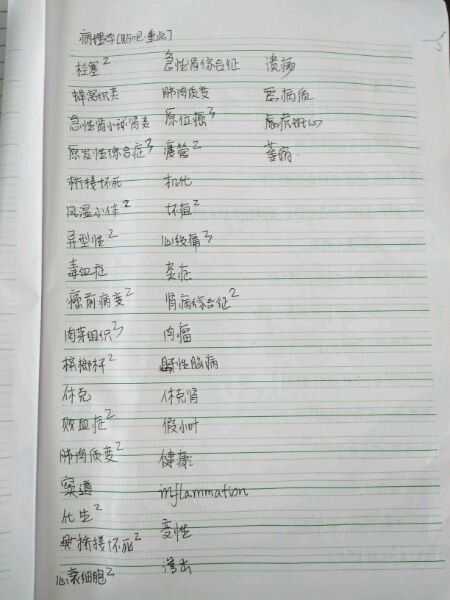 病理学[名解·重点]
栓塞² 急性肾综合征 溃疡
蜂窝织炎 肺肉质变 恶病质
急性肾小球肾炎 原位癌³ 虎斑心
原发性综合症³ 瘘管² 萎缩
桥接坏死 机化
风湿小体² 坏疽²
异型性² 心绞痛³
毒血症 炎症
癌前病变² 肾病综合征²
肉芽组织³ 肉瘤
槟榔肝² 肝性脑病
休克 休克肾
败血症² 假小叶
肺肉质变² 健康
窦道 inflammation
化生² 变性
桥接坏死² 渗出
心衰细胞²